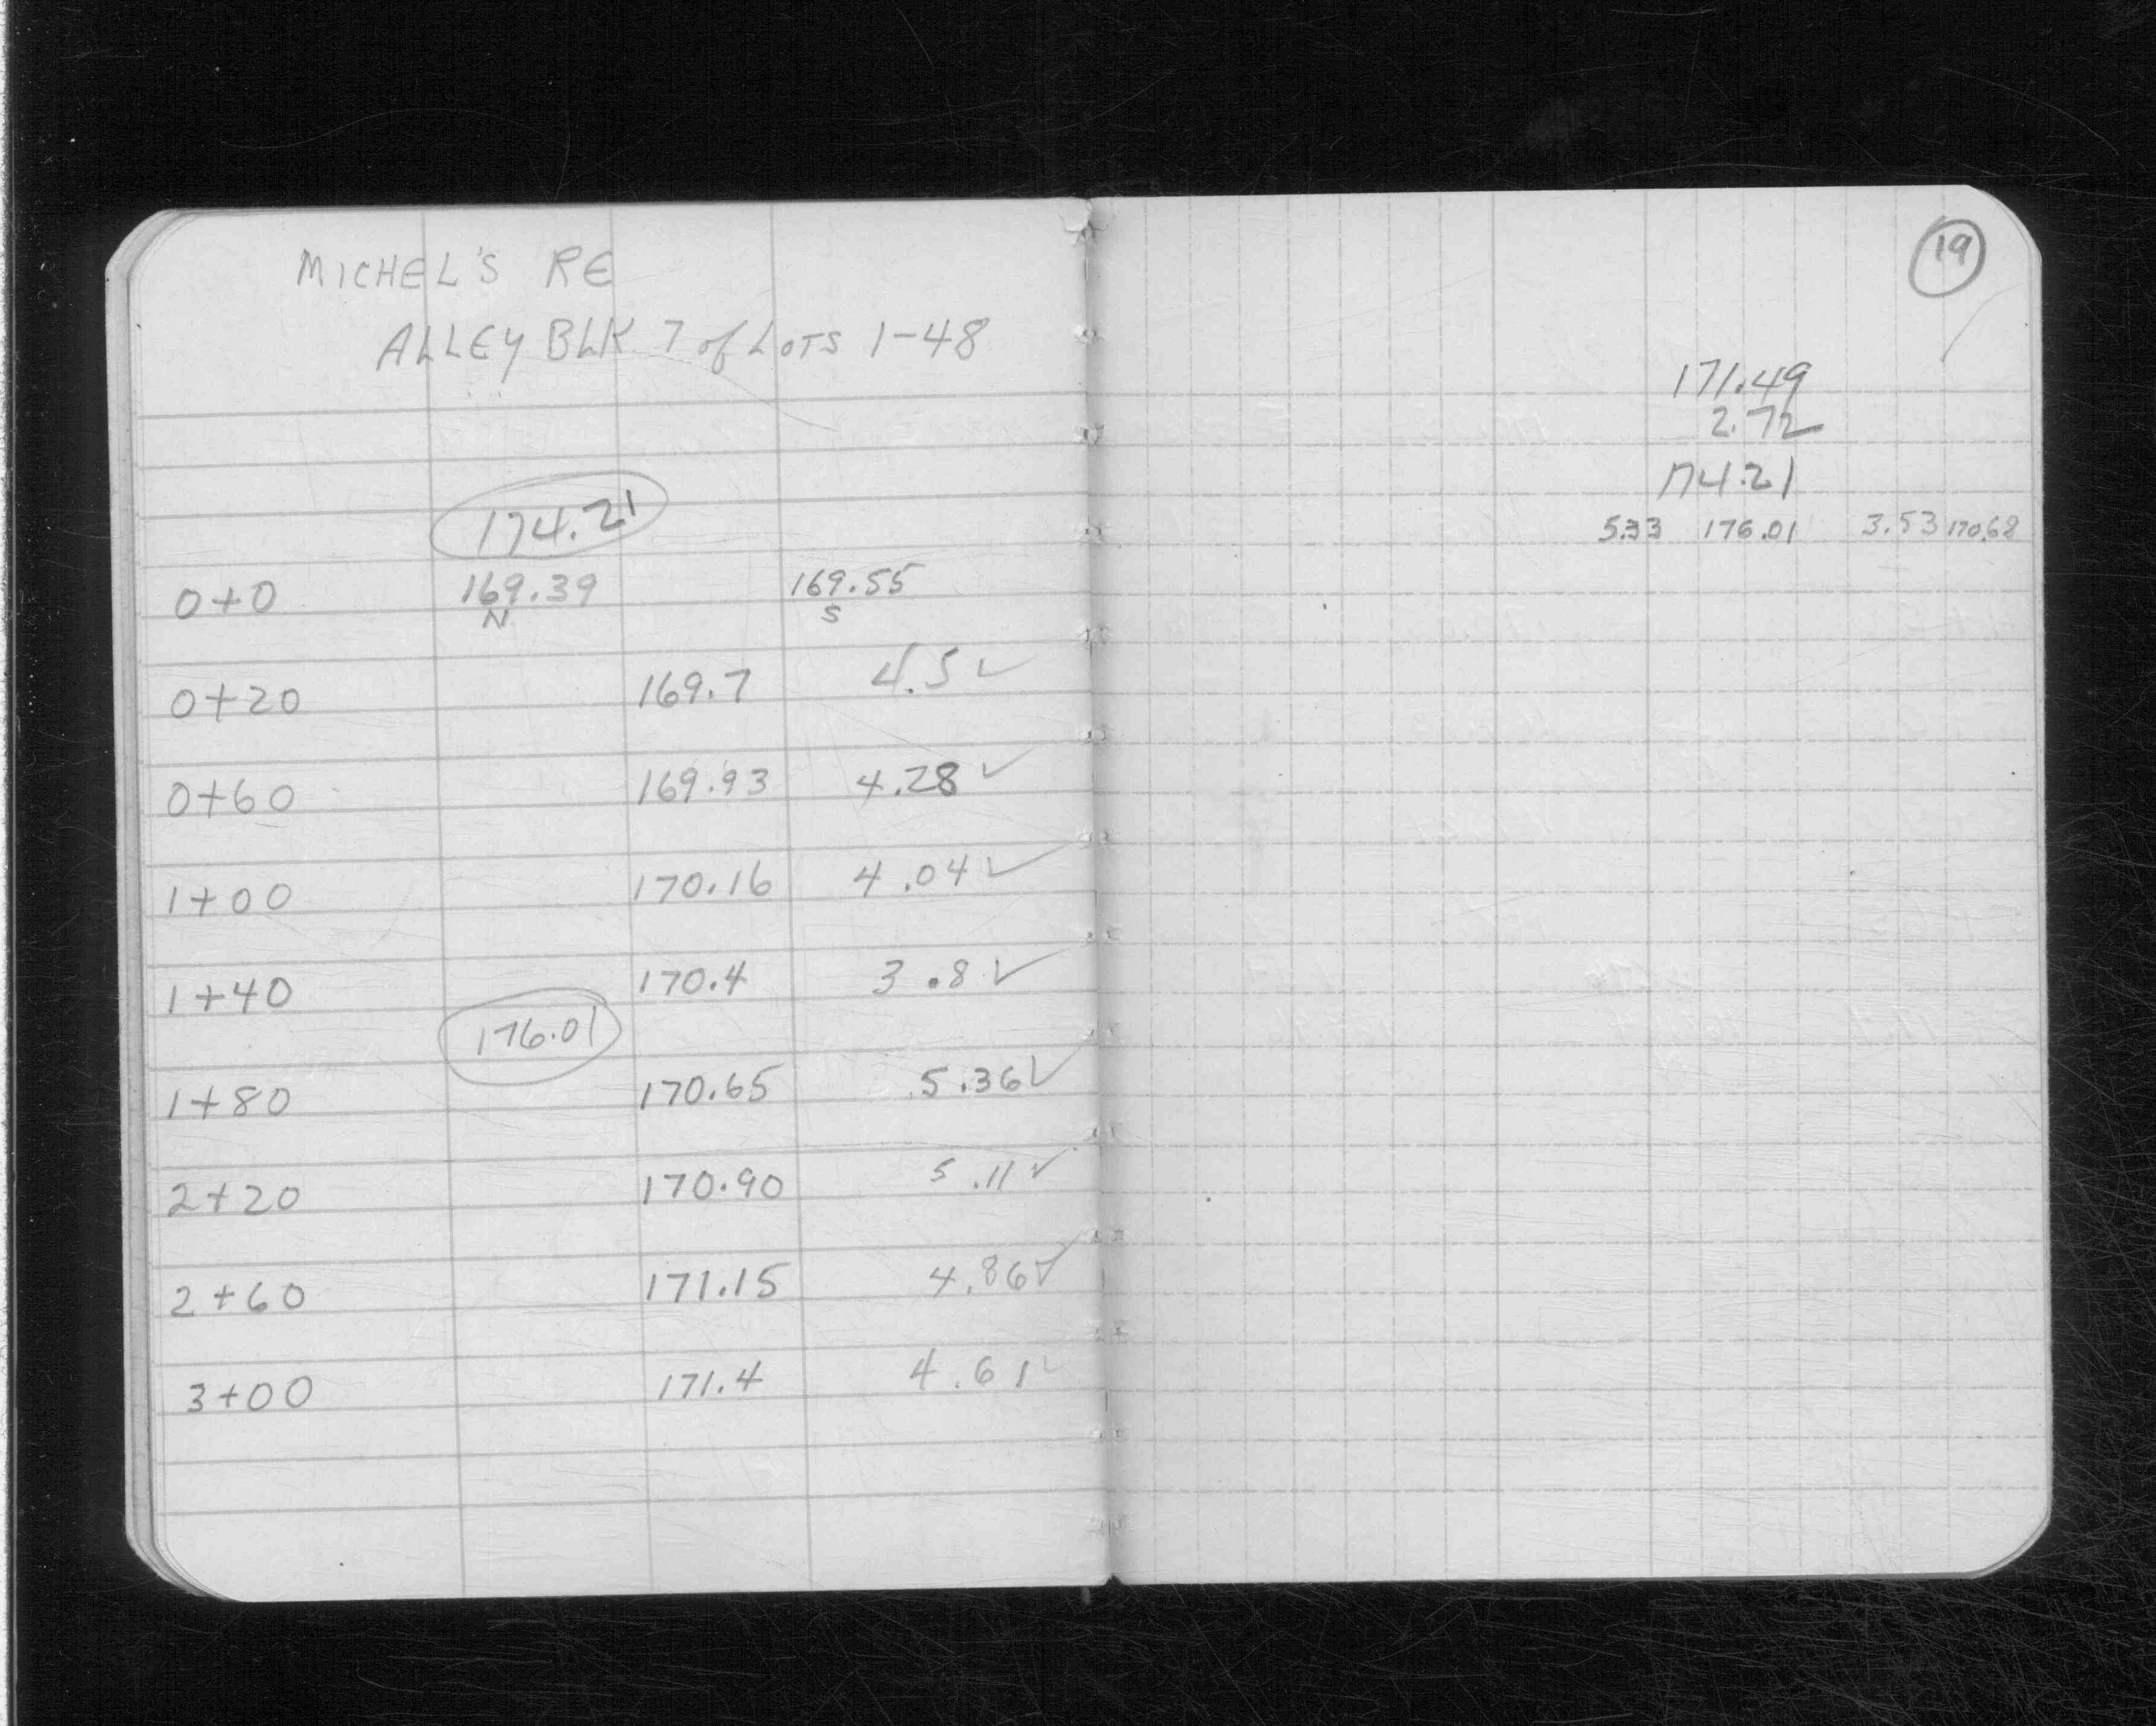 MICHEL'S RE
ALLEY BLK 7 of LOTS 1-48
174.21
0+0 169.39 169.55
N S
0+20 169.7 4.5 ✓
0+60 169.93 4.28 ✓
1+00 170.16 4.04 ✓
1+40 170.4 3.8 ✓
176.01
1+80 170.65 5.36 ✓
2+20 170.90 5.11 ✓
2+60 171.15 4.86 ✓
3+00 171.4 4.61 ✓
19
171.49
2.72
174.21
5.33 176.01 3.53 170.68